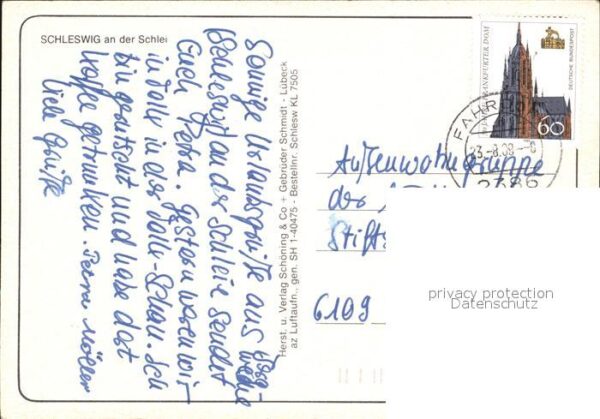 SCHLESWIG an der Schlei
Sonnige Urlaubsgrüße aus
Schleswig an der Schleie sendet
Euch Petra. Gestern waren wir
in Tolk in der Tolk-Schau. Ich
bin gerutscht und habe dort
Kaffee getrunken. Petra Möller
Liebe Grüße
Herst. u. Verlag Schöning & Co + Gebrüder Schmidt - Lübeck
az Luftaufn., gen. SH 1-40475 - Bestellnr. Schlesw KL 7505
FRANKFURTER DOM
DEUTSCHE BUNDESPOST
60
FAHRD
23.-8.
2386
Außenwohngruppe
der
Stifts
6109
privacy protection
Datenschutz